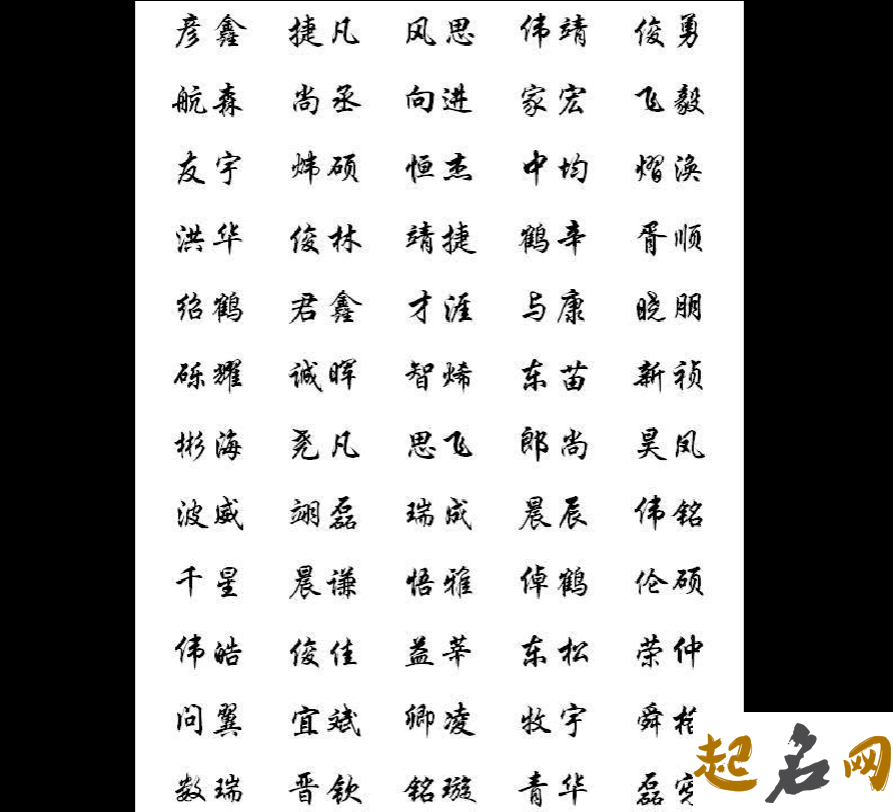 彦鑫 捷凡 风思 伟靖 俊勇
航森 尚丞 向进 家宏 飞毅
友宇 炜硕 恒杰 中均 熠涣
洪华 俊林 靖捷 鹤辛 胥顺
绍鹤 君鑫 才涯 与康 晓朋
砾耀 诚晖 智烯 东苗 新祯
彬海 尧凡 思飞 郎尚 昊凤
波威 翊磊 瑞成 晨辰 伟铭
千星 晨谦 悟雅 倬鹤 伦硕
伟皓 俊佳 益莘 东松 荣仲
问翼 宜斌 卿凌 牧宇 舜
数瑞 晋钦 铭璇 青华 磊
起名网